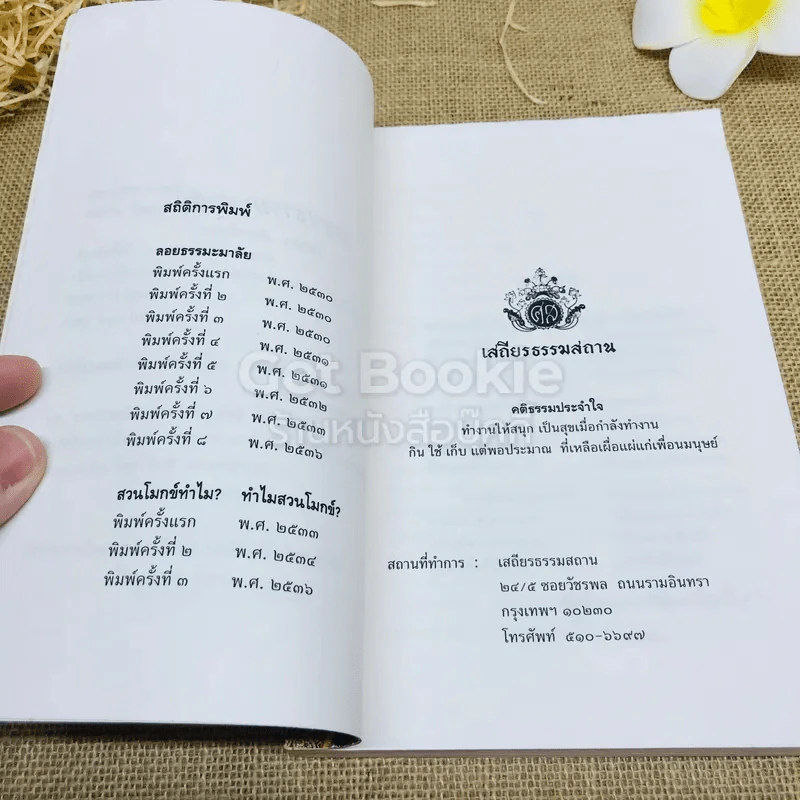 สถิติการพิมพ์
ลอยธรรมะมาลัย
พิมพ์ครั้งแรก พ.ศ. ๒๕๓๐
พิมพ์ครั้งที่ ๒ พ.ศ. ๒๕๓๐
พิมพ์ครั้งที่ ๓ พ.ศ. ๒๕๓๐
พิมพ์ครั้งที่ ๔ พ.ศ. ๒๕๓๑
พิมพ์ครั้งที่ ๕ พ.ศ. ๒๕๓๑
พิมพ์ครั้งที่ ๖ พ.ศ. ๒๕๓๒
พิมพ์ครั้งที่ ๗ พ.ศ. ๒๕๓๓
พิมพ์ครั้งที่ ๘ พ.ศ. ๒๕๓๖
สวนโมกข์ทำไม? ทำไมสวนโมกข์?
พิมพ์ครั้งแรก พ.ศ. ๒๕๓๓
พิมพ์ครั้งที่ ๒ พ.ศ. ๒๕๓๔
พิมพ์ครั้งที่ ๓ พ.ศ. ๒๕๓๖
เสถียรธรรมสถาน
คติธรรมประจำใจ
ทำงานให้สนุก เป็นสุขเมื่อกำลังทำงาน
กิน ใช้ เก็บ แต่พอประมาณ ที่เหลือเผื่อแผ่แก่เพื่อนมนุษย์
สถานที่ทำการ : เสถียรธรรมสถาน
๒๔/๕ ซอยวัชรพล ถนนรามอินทรา
กรุงเทพฯ ๑๐๒๓๐
โทรศัพท์ ๕๑๐-๖๖๙๗
Got Bookie
ร้านหนังสือบุ๊คกี้